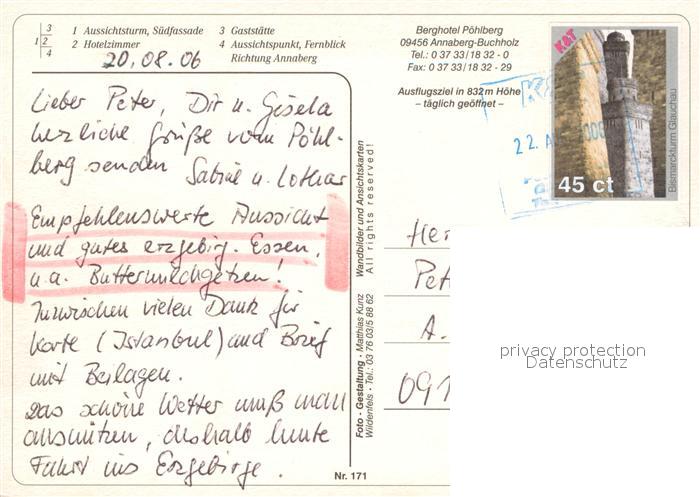 3
1 2
4
1 Aussichtsturm, Südfassade
2 Hotelzimmer
3 Gaststätte
4 Aussichtspunkt, Fernblick
Richtung Annaberg
20.08.06
Lieber Peter, Dir u. Gisela
herzliche Grüße vom Pöhl-
berg senden Sabine u. Lothar
Empfehlenswerte Aussicht
und gutes erzgebirg. Essen,
u.a. Buttermilchgetzen!
Inzwischen vielen Dank für
Karte (Istanbul) und Brief
mit Beilagen.
Das schöne Wetter muß man
ausnützen, deshalb heute
Fahrt ins Erzgebirge.
Berghotel Pöhlberg
09456 Annaberg-Buchholz
Tel.: 0 37 33/18 32 - 0
Fax: 0 37 33/18 32 - 29
Ausflugsziel in 832 m Höhe
– täglich geöffnet –
Foto - Gestaltung - Matthias Kunz Wandbilder und Ansichtskarten
Wildenfels - Tel.: 03 76 03/5 88 62 All rights reserved!
Nr. 171
K&T
45 ct
Bismarckturm Glauchau
22. A
Her
Pet
A.
091
privacy protection
Datenschutz